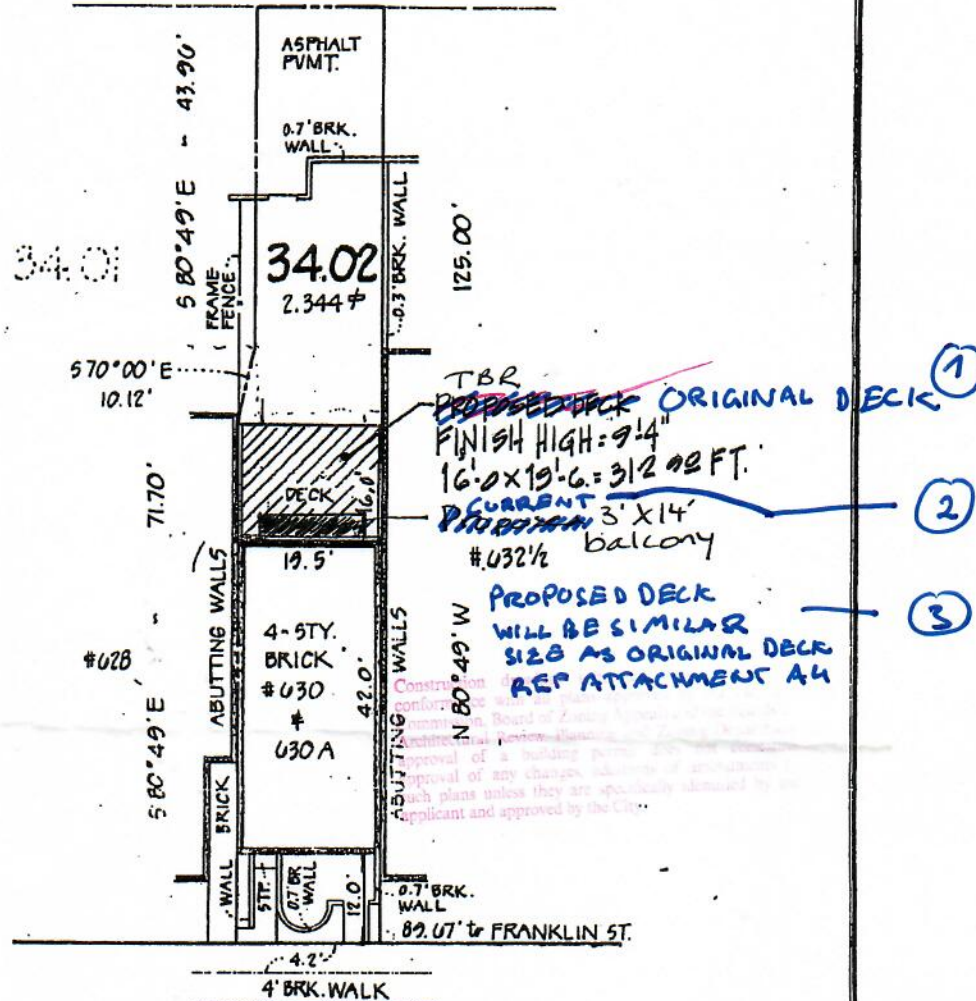 ASPHALT
PVMT.
0.7' BRK.
WALL
S 80°49'E - 43.90'
34.01
FRAME
FENCE
34.02
2.344 ⌗
0.3' BRK. WALL
125.00'
S 70°00'E
10.12'
TBR
PROPOSED DECK ORIGINAL DECK
1
FINISH HIGH: 9'-4"
16'-0 X 19'-6 = 312 SQ FT.
DECK
16.0'
CURRENT
3' X 14'
balcony
2
#632½
19.5'
71.70'
ABUTTING WALLS
PROPOSED DECK
WILL BE SIMILAR
SIZE AS ORIGINAL DECK
REF ATTACHMENT A4
3
#628
4-STY.
BRICK
#630
&
630 A
42.0'
ABUTTING WALLS
N 80°49'W
S 80°49'E
Construction
conformance with all plans
Commission, Board of Zoning
Architectural Review
approval of a building permit does not
approval of any changes,
such plans unless they are specifically identified by
applicant and approved by the City.
BRICK
WALL
STP.
0.7' BR
WALL
12.0'
0.7' BRK.
WALL
89.67' to FRANKLIN ST.
4.2'
4' BRK. WALK